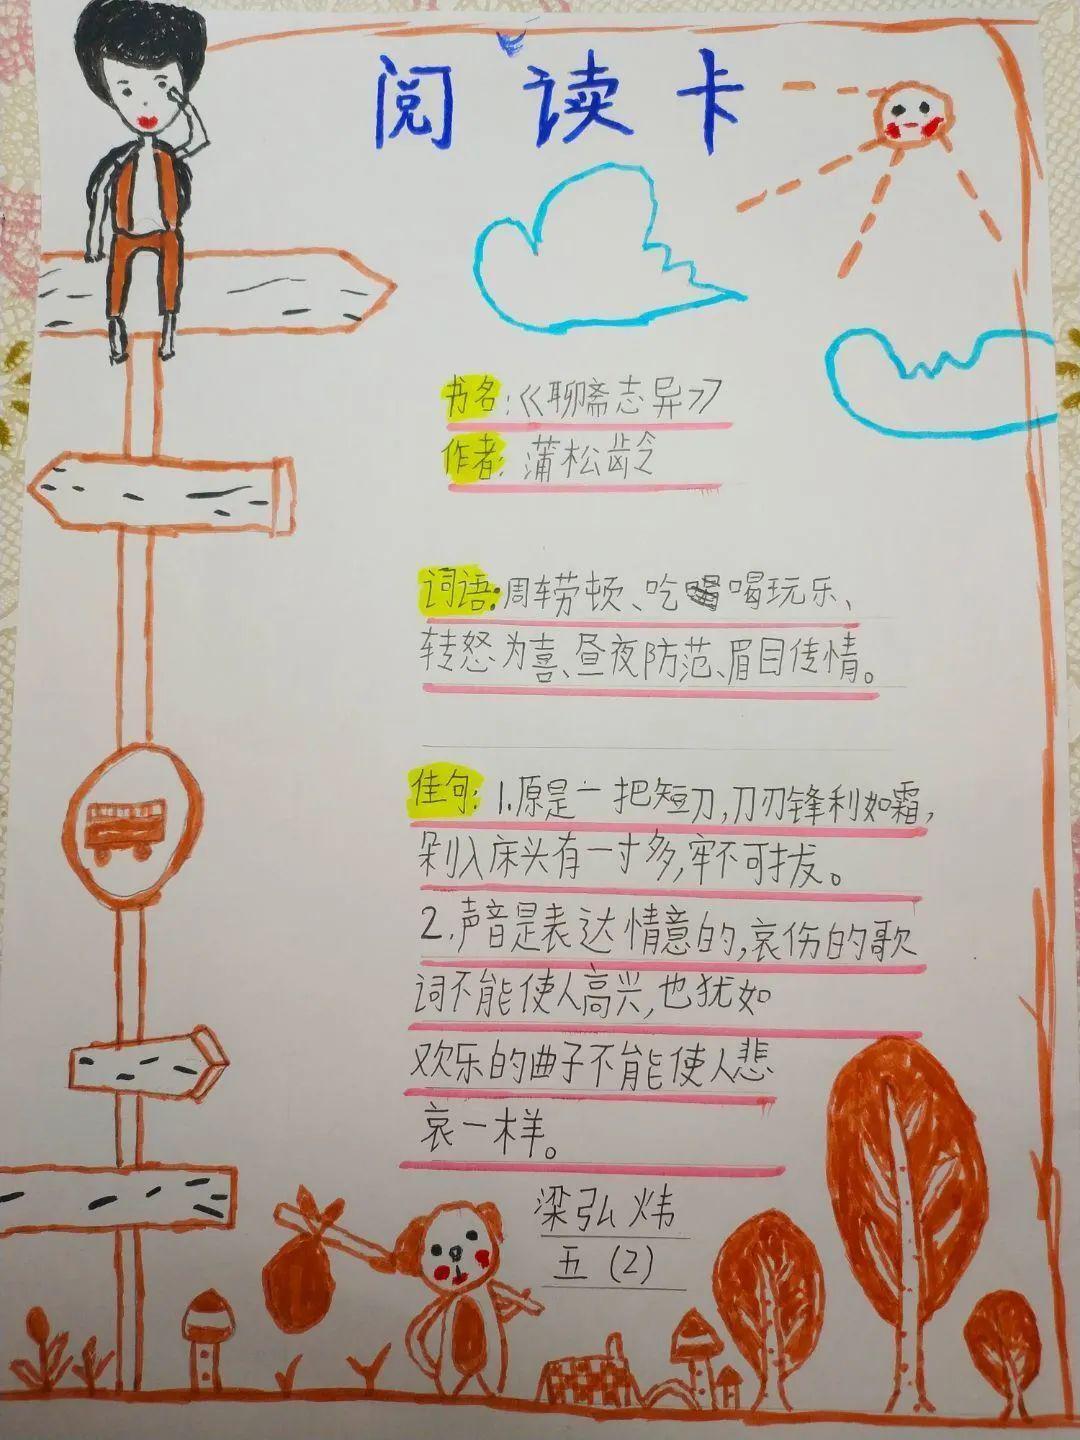 阅读卡
书名:《聊斋志异》
作者:蒲松龄
词语:周车劳顿、吃喝玩乐、
转怒为喜、昼夜防范、眉目传情。
佳句:1.原是一把短刀,刀刃锋利如霜,
剁入床头有一寸多,牢不可拔。
2.声音是表达情意的,哀伤的歌
词不能使人高兴,也犹如
欢乐的曲子不能使人悲
哀一样。
梁弘炜
五(2)